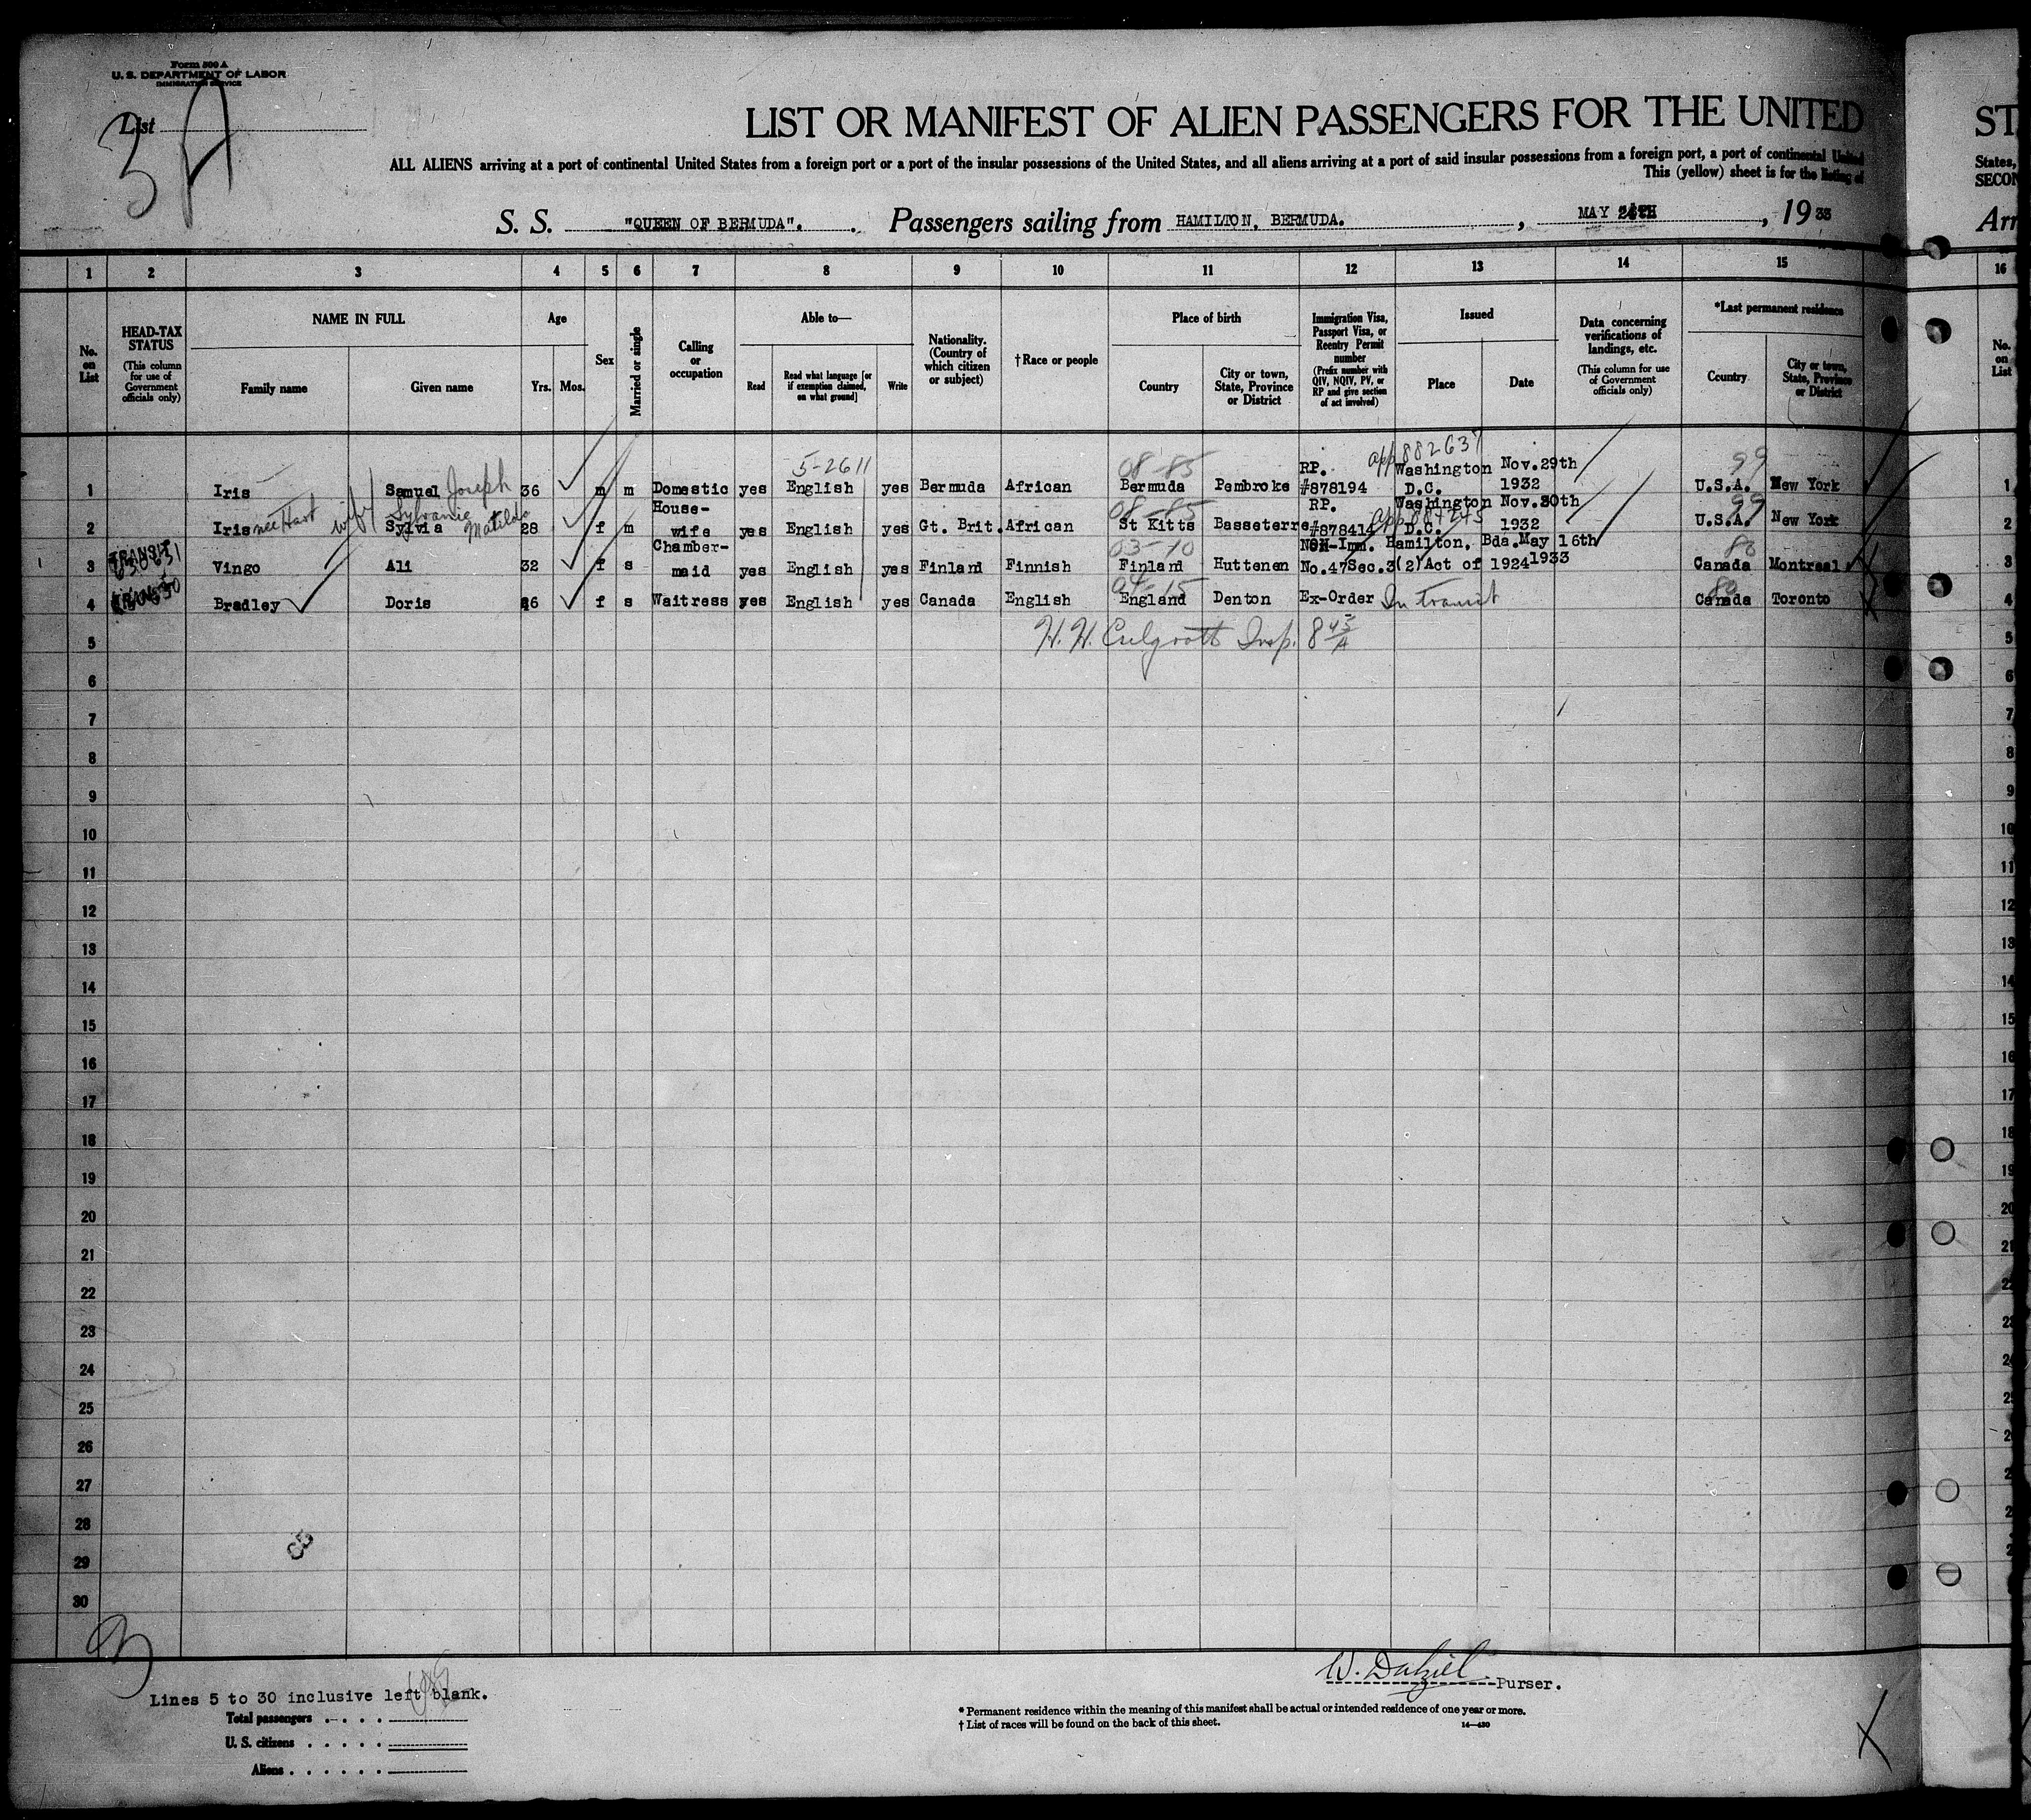 Form 500 A
U. S. DEPARTMENT OF LABOR
IMMIGRATION SERVICE
List
3 A
LIST OR MANIFEST OF ALIEN PASSENGERS FOR THE UNITED
ST
ALL ALIENS arriving at a port of continental United States from a foreign port or a port of the insular possessions of the United States, and all aliens arriving at a port of said insular possessions from a foreign port, a port of continental United
States,
This (yellow) sheet is for the listing of
SECON
S. S. "QUEEN OF BERMUDA". Passengers sailing from HAMILTON, BERMUDA. , MAY TH , 19 33
Arr
1 2 3 4 5 6 7 8 9 10 11 12 13 14 15 16
No. on List
HEAD-TAX STATUS (This column for use of Government officials only)
NAME IN FULL
Family name
Given name
Age
Yrs.
Mos.
Sex
Married or single
Calling or occupation
Able to—
Read
Read what language [or if exemption claimed, on what ground]
Write
Nationality. (Country of which citizen or subject)
† Race or people
Place of birth
Country
City or town, State, Province or District
Immigration Visa, Passport Visa, or Reentry Permit number (Prefix number with QIV, NQIV, PV, or RP and give section of act involved)
Issued
Place
Date
Data concerning verifications of landings, etc. (This column for use of Government officials only)
*Last permanent residence
Country
City or town, State, Province or District
No. on List
5-2611 08-85 app 882637 99
1 Iris Samuel Joseph 36 m m Domestic yes English yes Bermuda African Bermuda Pembroke RP. #878194 Washington D.C. Nov.29th 1932 U.S.A. New York 1
08-85 app 887245 99
2 Iris nee Hart wife Sylvia Sylvanie Matilda 28 f m House-wife yes English yes Gt. Brit. African St Kitts Basseterre RP. #878414 Washington D.C. Nov.30th 1932 U.S.A. New York 2
TRANSIT 630631 03-10 80
3 Vingo Ali 32 f s Chamber-maid yes English yes Finland Finnish Finland Huttenen Non-Imm. No.47 Sec.3(2) Act of 1924 Hamilton, Bda. May 16th 1933 Canada Montreal 3
TRANSIT 04-15 80
4 Bradley Doris 26 f s Waitress yes English yes Canada English England Denton Ex-Order In transit Canada Toronto 4
5 H. H. Insp. 8 45/A 5
6 6
7 7
8 8
9 9
10 10
11 11
12 12
13 13
14 14
15 15
16 16
17 17
18 18
19 19
20 20
21 21
22 22
23 23
24 24
25 25
26 2
27 2
28 2
29 2
30
W. Dalziel Purser.
Lines 5 to 30 inclusive left blank.
Total passengers . . . .
U. S. citizens . . . . .
Aliens . . . . . .
* Permanent residence within the meaning of this manifest shall be actual or intended residence of one year or more.
† List of races will be found on the back of this sheet.
14—430